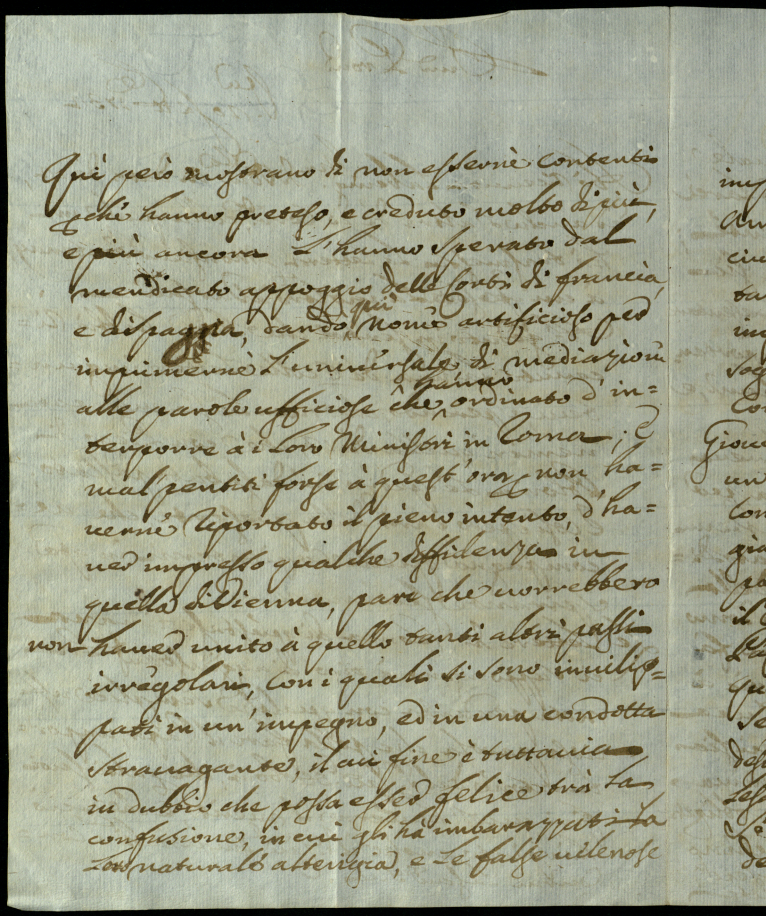 Qui però mostrano di non esserne contenti
pchè hanno preteso, e creduto molto di più,
e più ancora l'hanno sperato dal
mendicato appoggio delle Corti di francia,
e di spagna, dando, nome più artificioso per
imprimerne l'universale di mediazione
alle parole ufficiose che hanno ordinato d'in=
terporre à i loro Ministri in Roma; E
mal pentiti forse à quest'ora, non ha=
verne riportato il pieno intento, d'ha=
ver impresso qualche diffidenza in
quella di Vienna, pare che vorrebbero
non haver unito à quello tanti altri passi
irregolari, con i quali si sono invilip=
pati in un'impegno, ed in una condotta
stravagante, il cui fine è tuttavia
in dubbio che possa esser felice trà la
confusione, in cui gli hà imbarazzati la
loro naturale alterigia, e le false